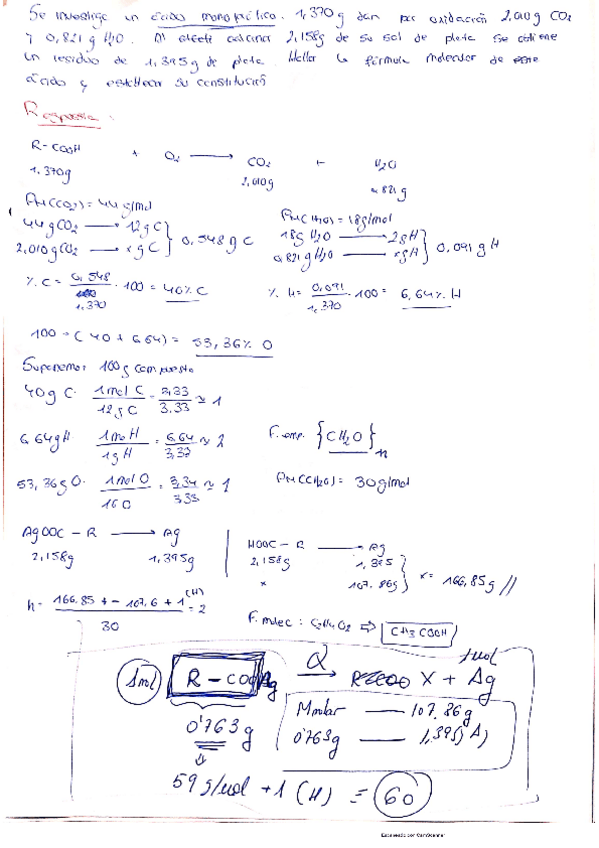 Se investiga un ácido monoprótico. 1,370g dan por oxidación 2,010g CO2
y 0,821g H2O. Al calcinar 2,158g de su sal de plata se obtiene
un residuo de 1,395g de plata. Hallar la fórmula molecular de este
ácido y establecer su constitución
Respuesta:
R-COOH + O2 → CO2 + H2O
1,370g 2,010g 0,821g
PM(CO2) = 44g/mol
44gCO2 → 12gC
2,010gCO2 → xgC } 0,548g C
PM(H2O) = 18g/mol
18g H2O → 2gH
0,821g H2O → xgH } 0,091g H
% C = 0,548 / 1,370 · 100 = 40% C
% H = 0,091 / 1,370 · 100 = 6,64% H
100 - (40 + 6,64) = 53,36% O
Suponemos 100g compuesto
40g C · 1mol C / 12g C = 3,33 / 3.33 ≈ 1
6,64gH · 1mol H / 1gH = 6,64 / 3,33 ≈ 2
F. emp. {CH2O}n
53,36gO · 1molO / 16O = 3,34 / 3,33 ≈ 1
PM(CH2O) = 30g/mol
AgOOC-R → Ag
2,158g 1,395g
HOOC-R → Ag
2,158g 1,395
x 107.86g } x = 166,85g //
n = 166.85 - 107,6 + 1 (H) / 30 = 2
F. molec: C2H4O2 ⇒ CH3COOH
1mol R-COOAg Q → X + Ag 1mol
Mmolar — 107.86g
0'763g — 1,395g
0'763g
59g/mol + 1 (H) = 60
Escaneado con CamScanner